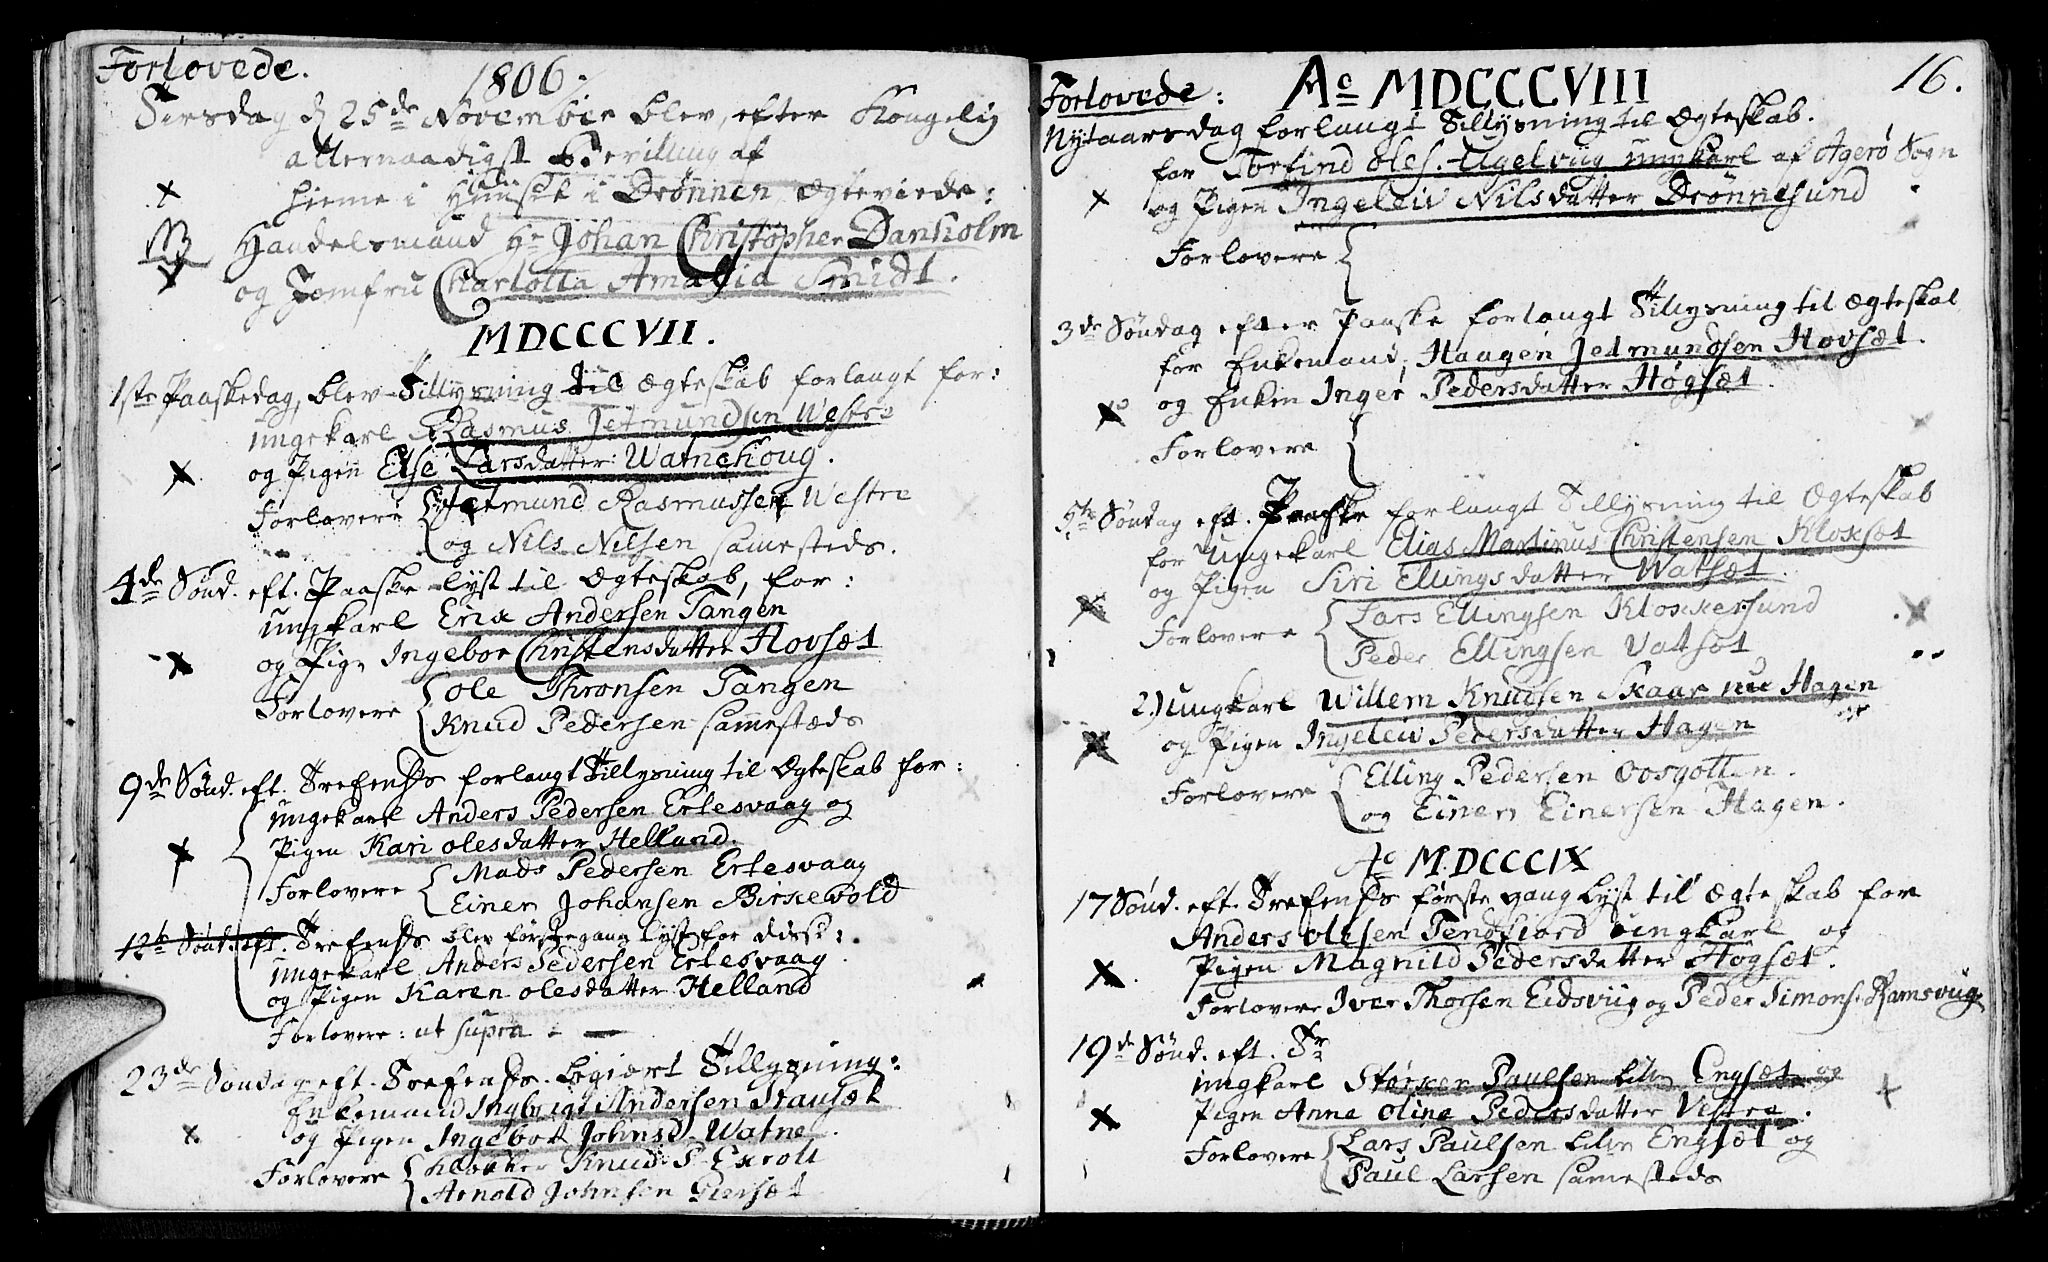 Forlovede.
1806.
Tirsdag d 25de November blev, efter Kongelig
allernaadigst Bevilling af
hieme i Huuset i Drönnen, Ægteviede:
Handelsmand Hr Johan Christopher Danholm
og Jomfru Charlotta Amalia Smidt.
MDCCCVII.
1ste Paaskedag, blev Tillysning til Ægteskab forlangt for:
Ungekarl Rasmus Jetmundsen Westre
og Pigen Else Larsdatter Watnehoug.
Forlovere Jetmund Rasmussen Westre
og Nils Nilsen sammesteds.
4de Sønd. eft. Paaske lyst til Ægteskab, for:
Ungkarl Erix Andersen Tangen
og Pige Ingebor Christensdatter Hovsæt
Forlovere Ole Thronsen Tangen
Knud Pedersen sammestæds
9de Sønd. eft. Trefensds forlangt Tillysning til Ægteskab for:
Ungekarl Anders Pedersen Ertesvaag og
Pigen Kari Olesdatter Helland.
Forlovere Mads Pedersen Ertesvaag
Einer Johansen Birkevold
12te Sønd. eft. Trefensds blev förstegang lyst for disse:
Ungekarl Anders Pedersen Ertesvaag
og Pigen Karen Olesdatter Helland
Forlovere: ut supra
23de Söndag eft. Trefensds. begiert Tillysning:
Enkemand Ingbrigt Andersen
og Pigen Ingebor Johnsd. Watne
Forlovere Klokker Knud P.
Arnold Johnsen
16.
Forlovede: Ao MDCCCVIII
Nytaarsdag forlangt Tillysning til Ægteskab.
for Torfind Oles. Ugelviig ungkarl af Agerö Sogn
og Pigen Ingeleiv Nilsdatter Drönnesund
Forlovere
3de Söndag efter Paaske forlangt Tillysning til Ægteskab
for Enkemand, Haagen Jetmundsen Hovsæt.
og Enken Inger Pedersdatter Högsæt.
Forlovere
5te Söndag eft. Paaske forlangt Tillysning til Ægteskab
for Ungekarl Elias Martinus Christensen Kloxsæt
og Pigen Siri Ellingsdatter Watsæt.
Forlovere Lars Ellingsen Kloxkersund
Peder Ellingsen Vatsæt
2.) Ungkarl Willem Knudsen Skaar nu Hagen
og Pigen Ingeleiv Pedersdatter Hagen
Forlovere Elling Pedersen Oosgotten.
og Einer Einersen Hagen.
Ao MDCCCIX
17 Sønd. eft. Trefensds förste gang lyst til Ægteskab for
Anders Olesen Tendfiord ungkarl og
Pigen Magnild Pedersdatter Högsæt.
Forlovere Iver Thorsen Eidsviig og Peder Simons. Ramsviig
19de Sønd. eft. Tr
Ungkarl Störker Paulsen Lille Engsæt og
Pigen Anne Oline Pedersdatter Vestre.
Forlovere Lars Paulsen Lille Engsæt og
Paul Larsen sammesteds